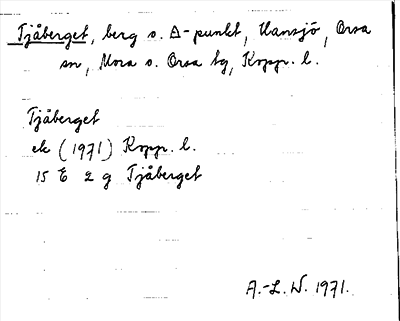 Tjåberget, berg o. Δ-punkt, Hansjö, Orsa
sn, Mora o. Orsa tg, Kopp. l.
Tjåberget
ek (1971) Kopp. l.
15 E 2 g Tjåberget
A.-L. W. 1971.